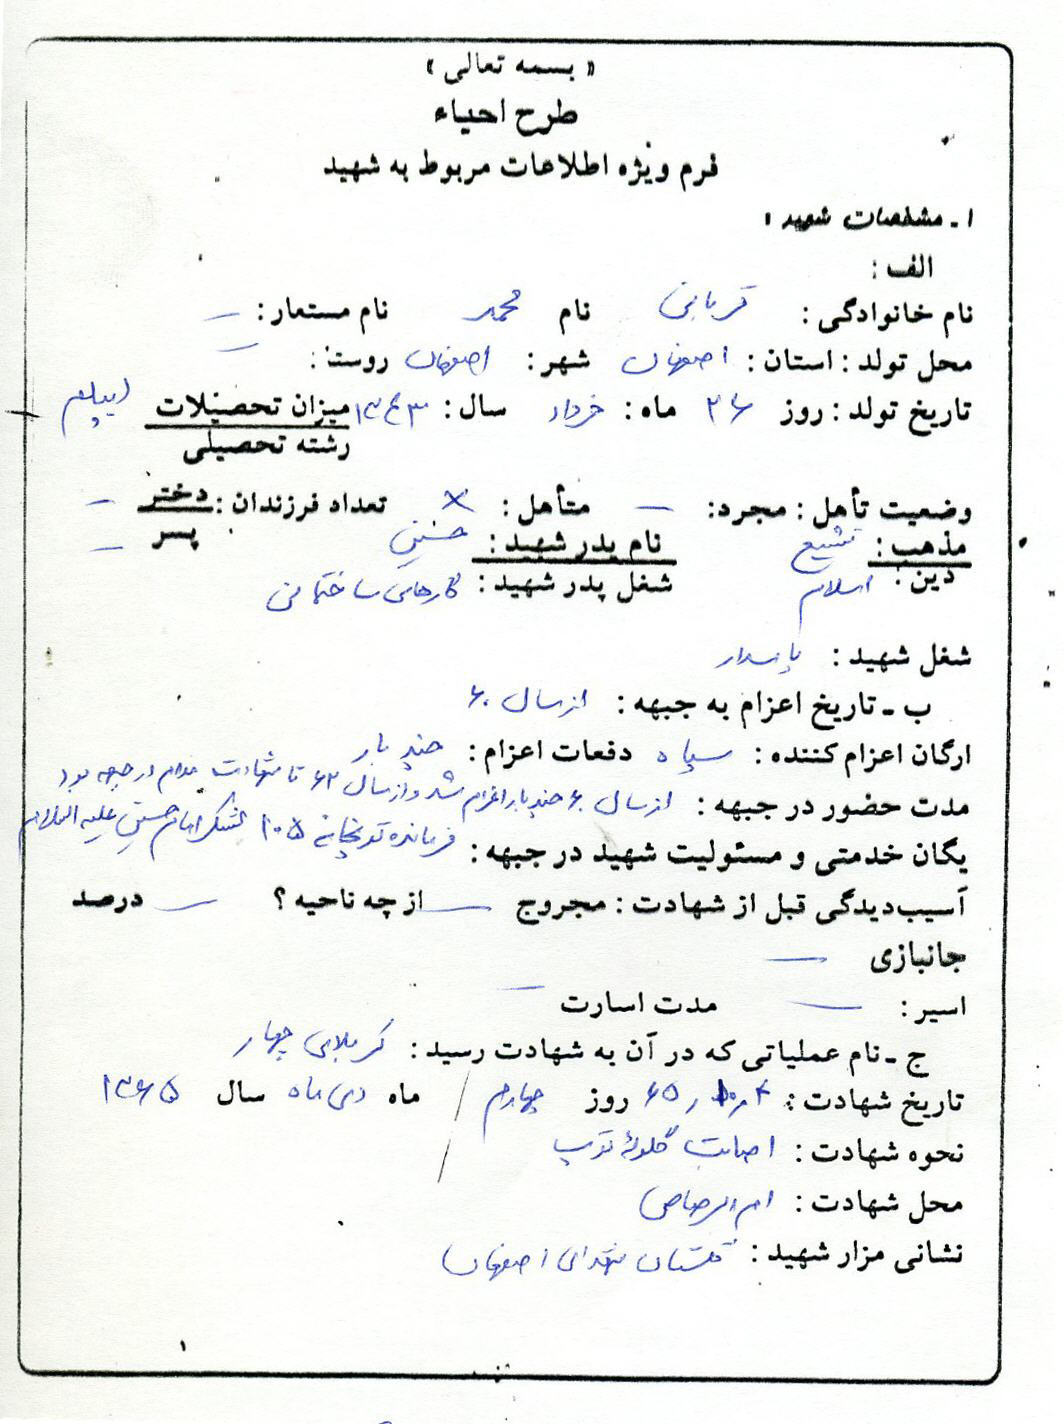 « بسمه تعالی »
طرح احیاء
فرم ویژه اطلاعات مربوط به شهید
۱ ـ مشخصات شهید :
الف :
نام خانوادگی : قربانی نام محمد نام مستعار : —
محل تولد : استان : اصفهان شهر : اصفهان روستا : —
تاریخ تولد : روز ۲۶ ماه : خرداد سال : ۱۳۴۳ میزان تحصیلات دیپلم
رشته تحصیلی
وضعیت تأهل : مجرد : — متأهل : × تعداد فرزندان : دختر —
مذهب : تشیع نام پدر شهید : حسین پسر —
دین : اسلام شغل پدر شهید : کارهای ساختمانی
شغل شهید : پاسدار
ب ـ تاریخ اعزام به جبهه : از سال ۶۰
ارگان اعزام کننده : سپاه دفعات اعزام : چند بار
مدت حضور در جبهه : از سال ۶۰ چند بار اعزام شد و از سال ۶۲ تا شهادت مدام در جبهه بود
یگان خدمتی و مسئولیت شهید در جبهه : فرمانده توپخانه ۱۰۵ لشکر امام حسین علیه السلام
آسیب‌دیدگی قبل از شهادت : مجروح — از چه ناحیه ؟ — درصد
جانبازی —
اسیر : — مدت اسارت —
ج ـ نام عملیاتی که در آن به شهادت رسید : کربلای چهار
تاریخ شهادت : ۶۵ روز چهارم ماه دی ماه سال ۱۳۶۵
نحوه شهادت : اصابت گلوله توپ
محل شهادت : ام الرصاص
نشانی مزار شهید : گلستان شهدای اصفهان
۱